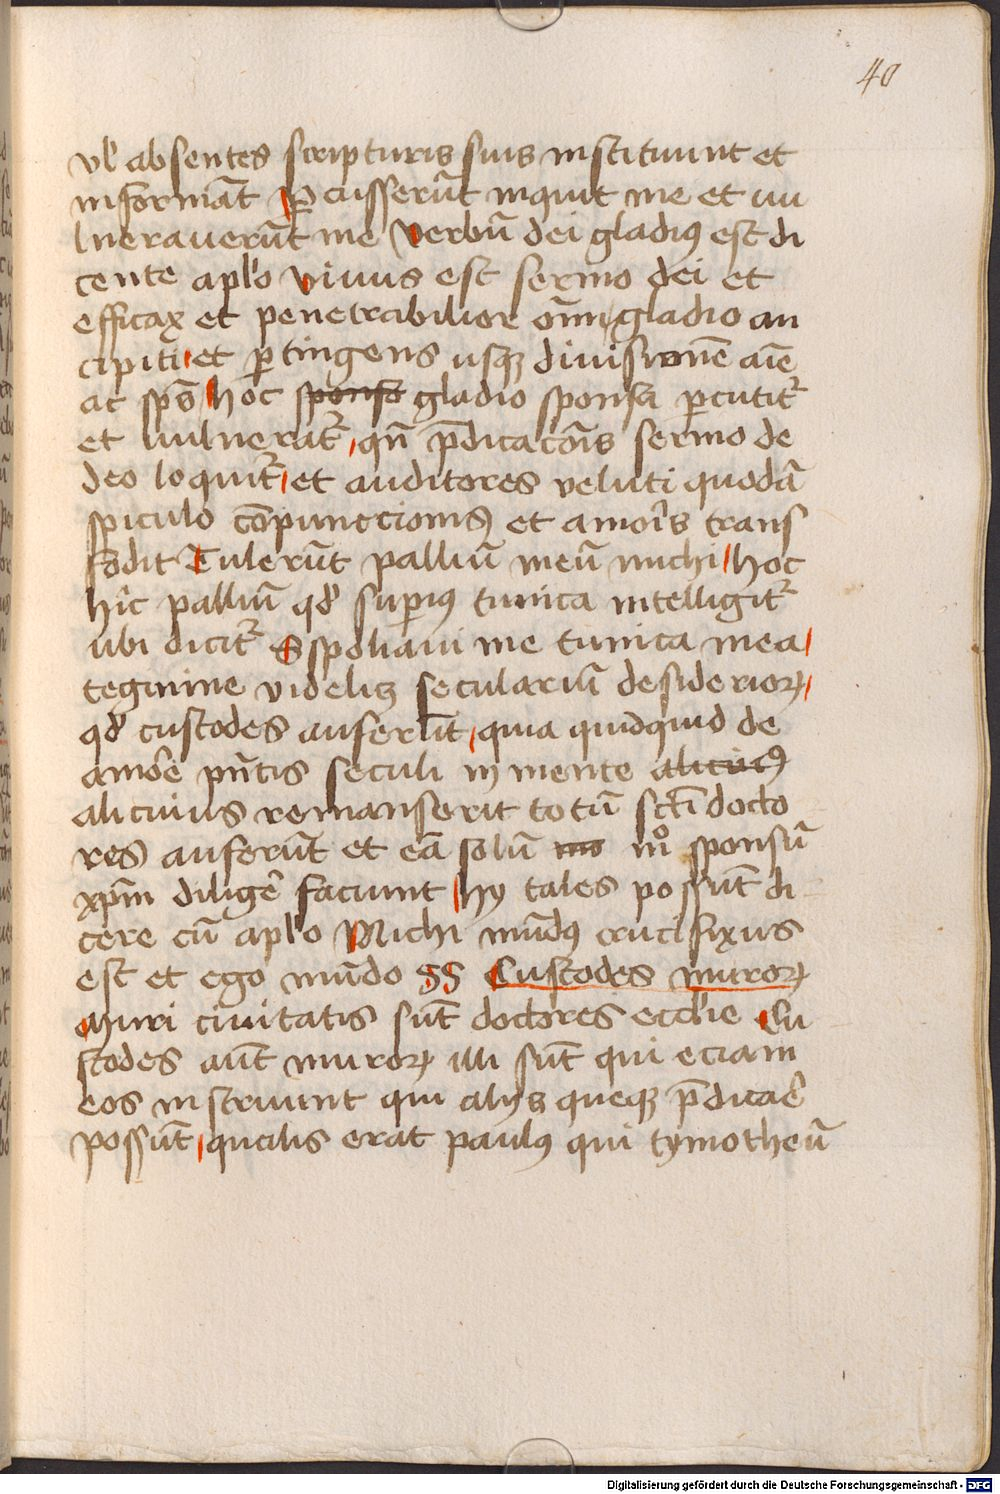 40
vl' absentes scripturis suis instituunt et
informāt Ꝑcusserūt inquit me et vu
lnerauerūt me Verbū dei gladiꝰ est di
cente apl'o Viuus est sermo dei et
efficax et penetrabilior om̄i gladio an
cipiti et ꝑtingens usqꝫ diuisionē aīe
ac sps̄ hoc sponso gladio sponsa ꝑcutit᷑
et uulnerat᷑ qn̄ p̄dicacōis sermo de
deo loquit᷑ et auditores veluti quodā
spiculo cōpunccionis et amor̄is trans
fodit Tulerūt palliū meū michi hoc
hīc palliū qd' suꝑius tunica intelligit᷑
ubi dicit᷑ Exspoliaui me tunica mea
tegmine videlicꝫ seculariū desiderioꝝ
qd' custodes auferūt quia quidquid de
amōre pn̄tis seculi in mente alicuiꝰ
alicuius remanserit totū sctī docto
res auferūt et eā solū mo mͦ sponsū
xp̄m diligē faciunt hy tales possūt di
cere cū apl'o Michi mūdꝰ crucifixus
est et ego mūdo §§ Custodes muroꝝ
Muri ciuitatis sūt doctores eccl'ie Cu
stodes aūt muroꝝ illi sūt qui eciam
eos instruunt qui alijs queqꝫ p̄dicar̄
possūt qualis erat paulꝰ qui tymotheū
Digitalisierung gefördert durch die Deutsche Forschungsgemeinschaft - DFG